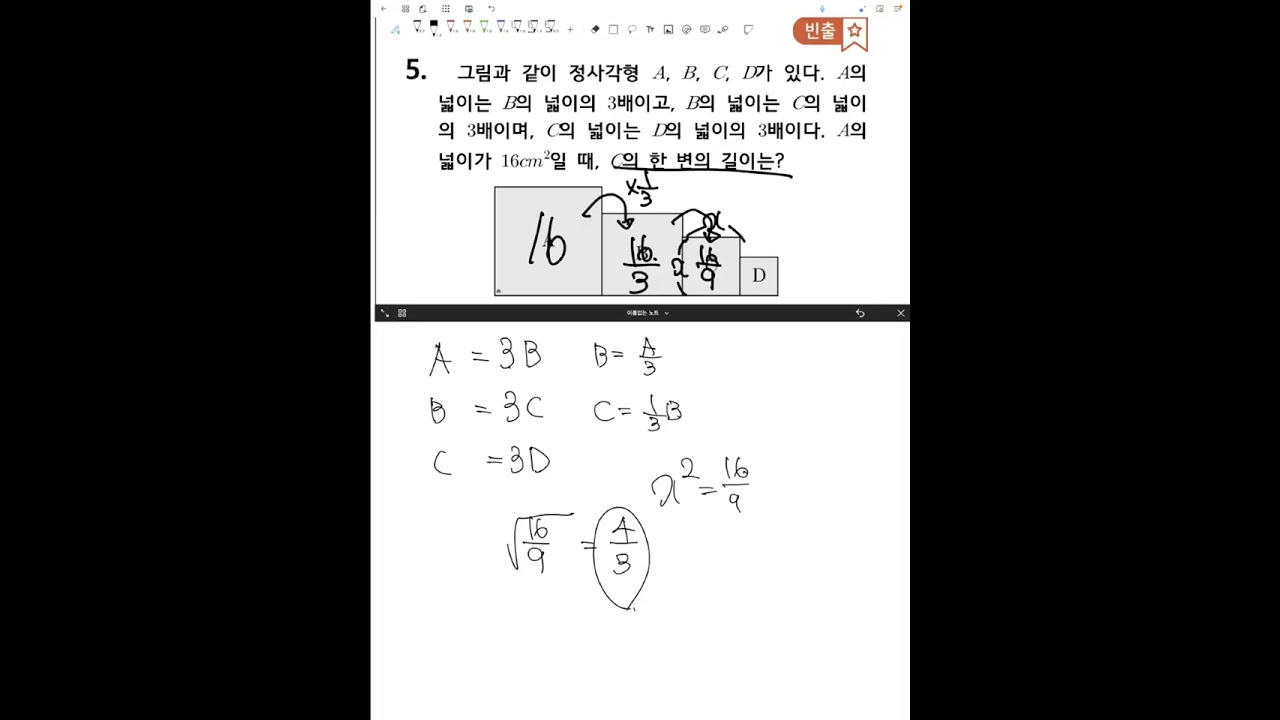 빈출
5. 그림과 같이 정사각형 A, B, C, D가 있다. A의
넓이는 B의 넓이의 3배이고, B의 넓이는 C의 넓이
의 3배이며, C의 넓이는 D의 넓이의 3배이다. A의
넓이가 16cm²일 때, C의 한 변의 길이는?
×1/3
x
16
16/3
x
16/9
D
이름없는 노트
A = 3B B = A/3
B = 3C C = 1/3 B
C = 3D
x² = 16/9
√16/9 = 4/3